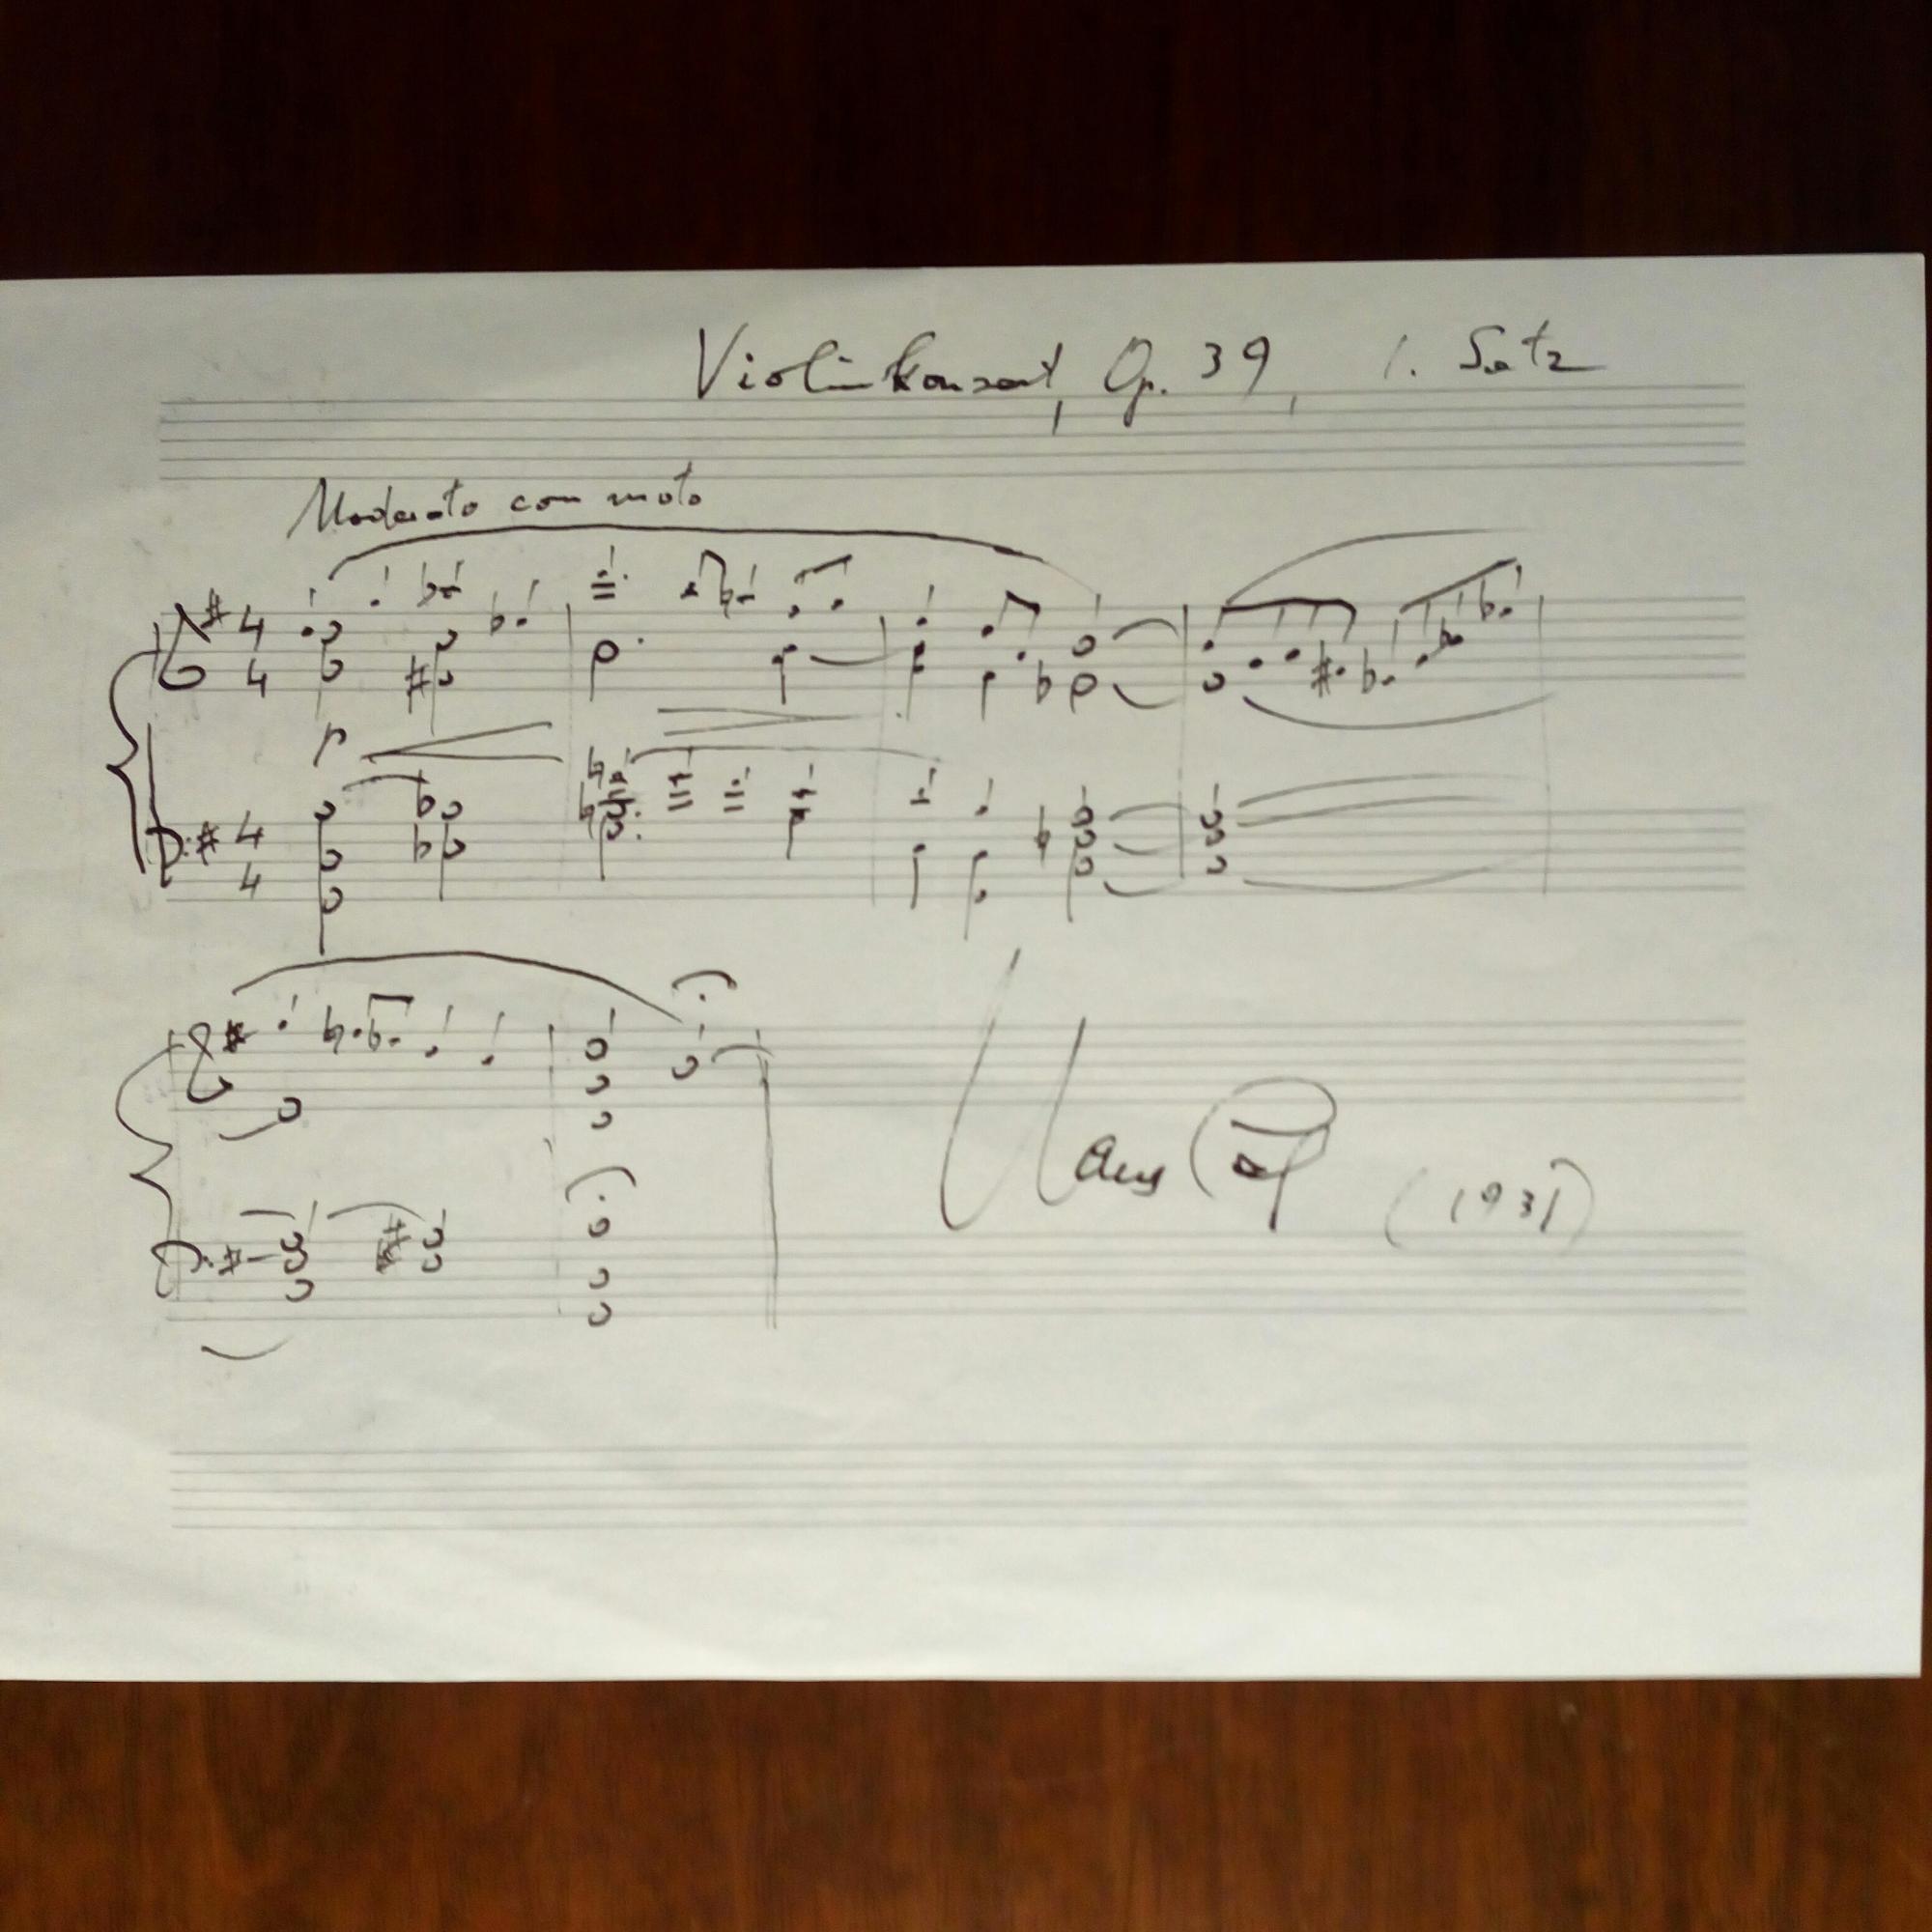 Violinkonzert, Op. 39, 1. Satz
Moderato con moto
4 4
p
4 4
(1931)